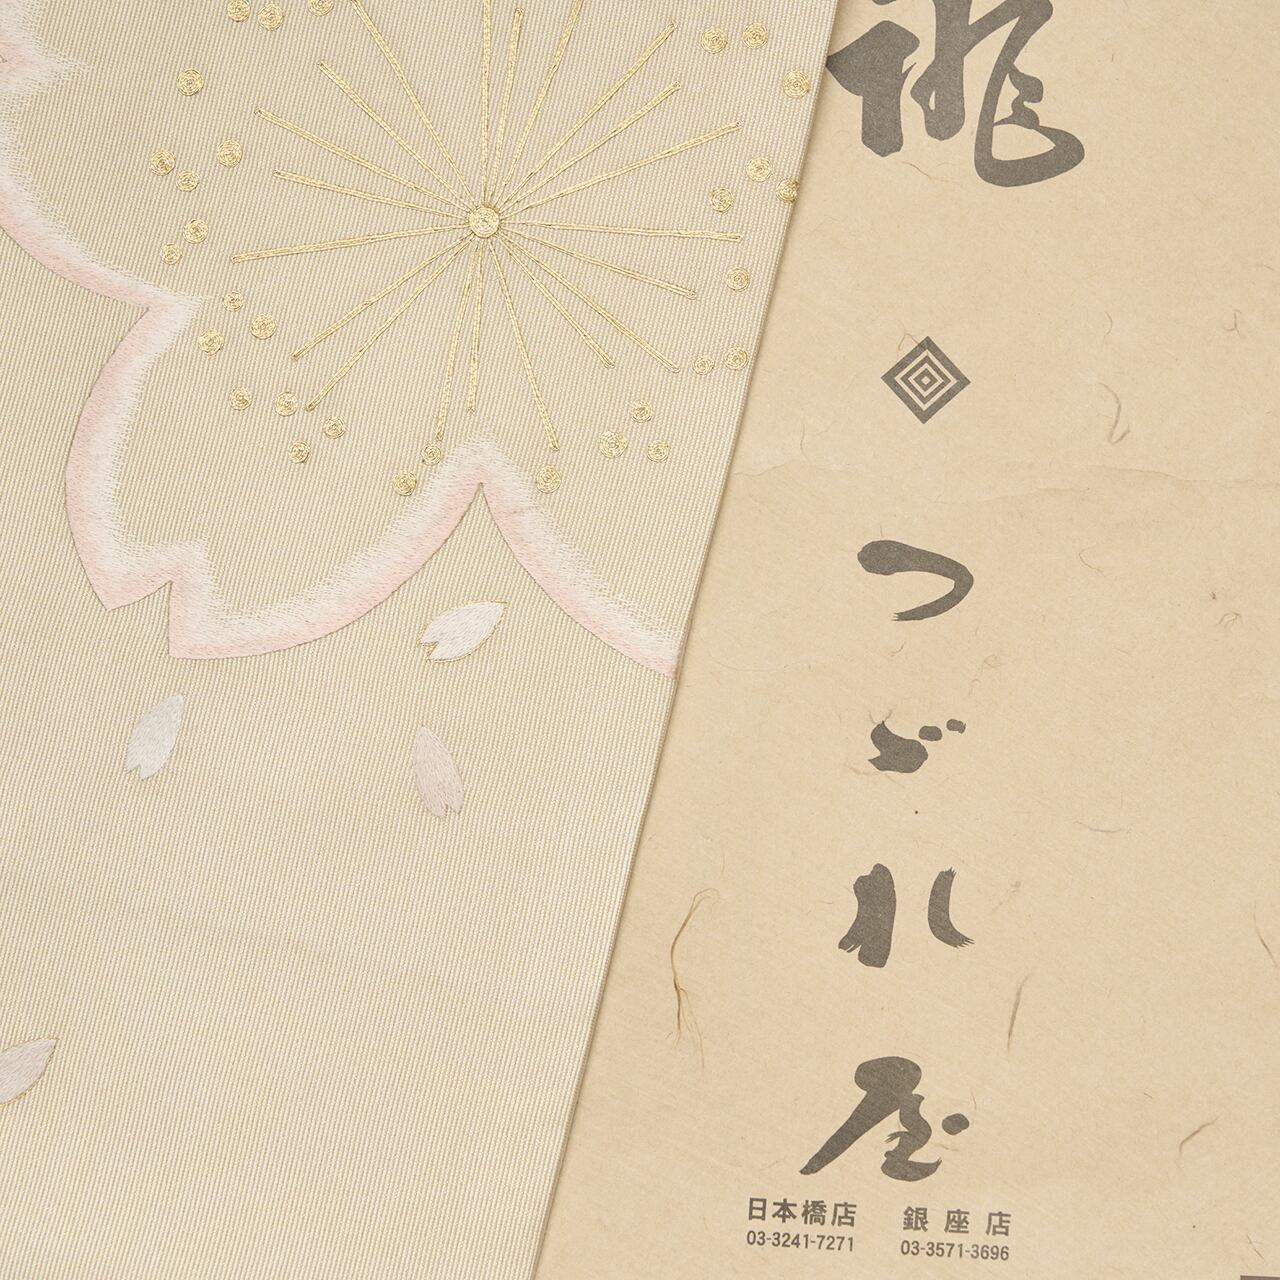 つゞれ屋
日本橋店 銀座店
03-3241-7271 03-3571-3696